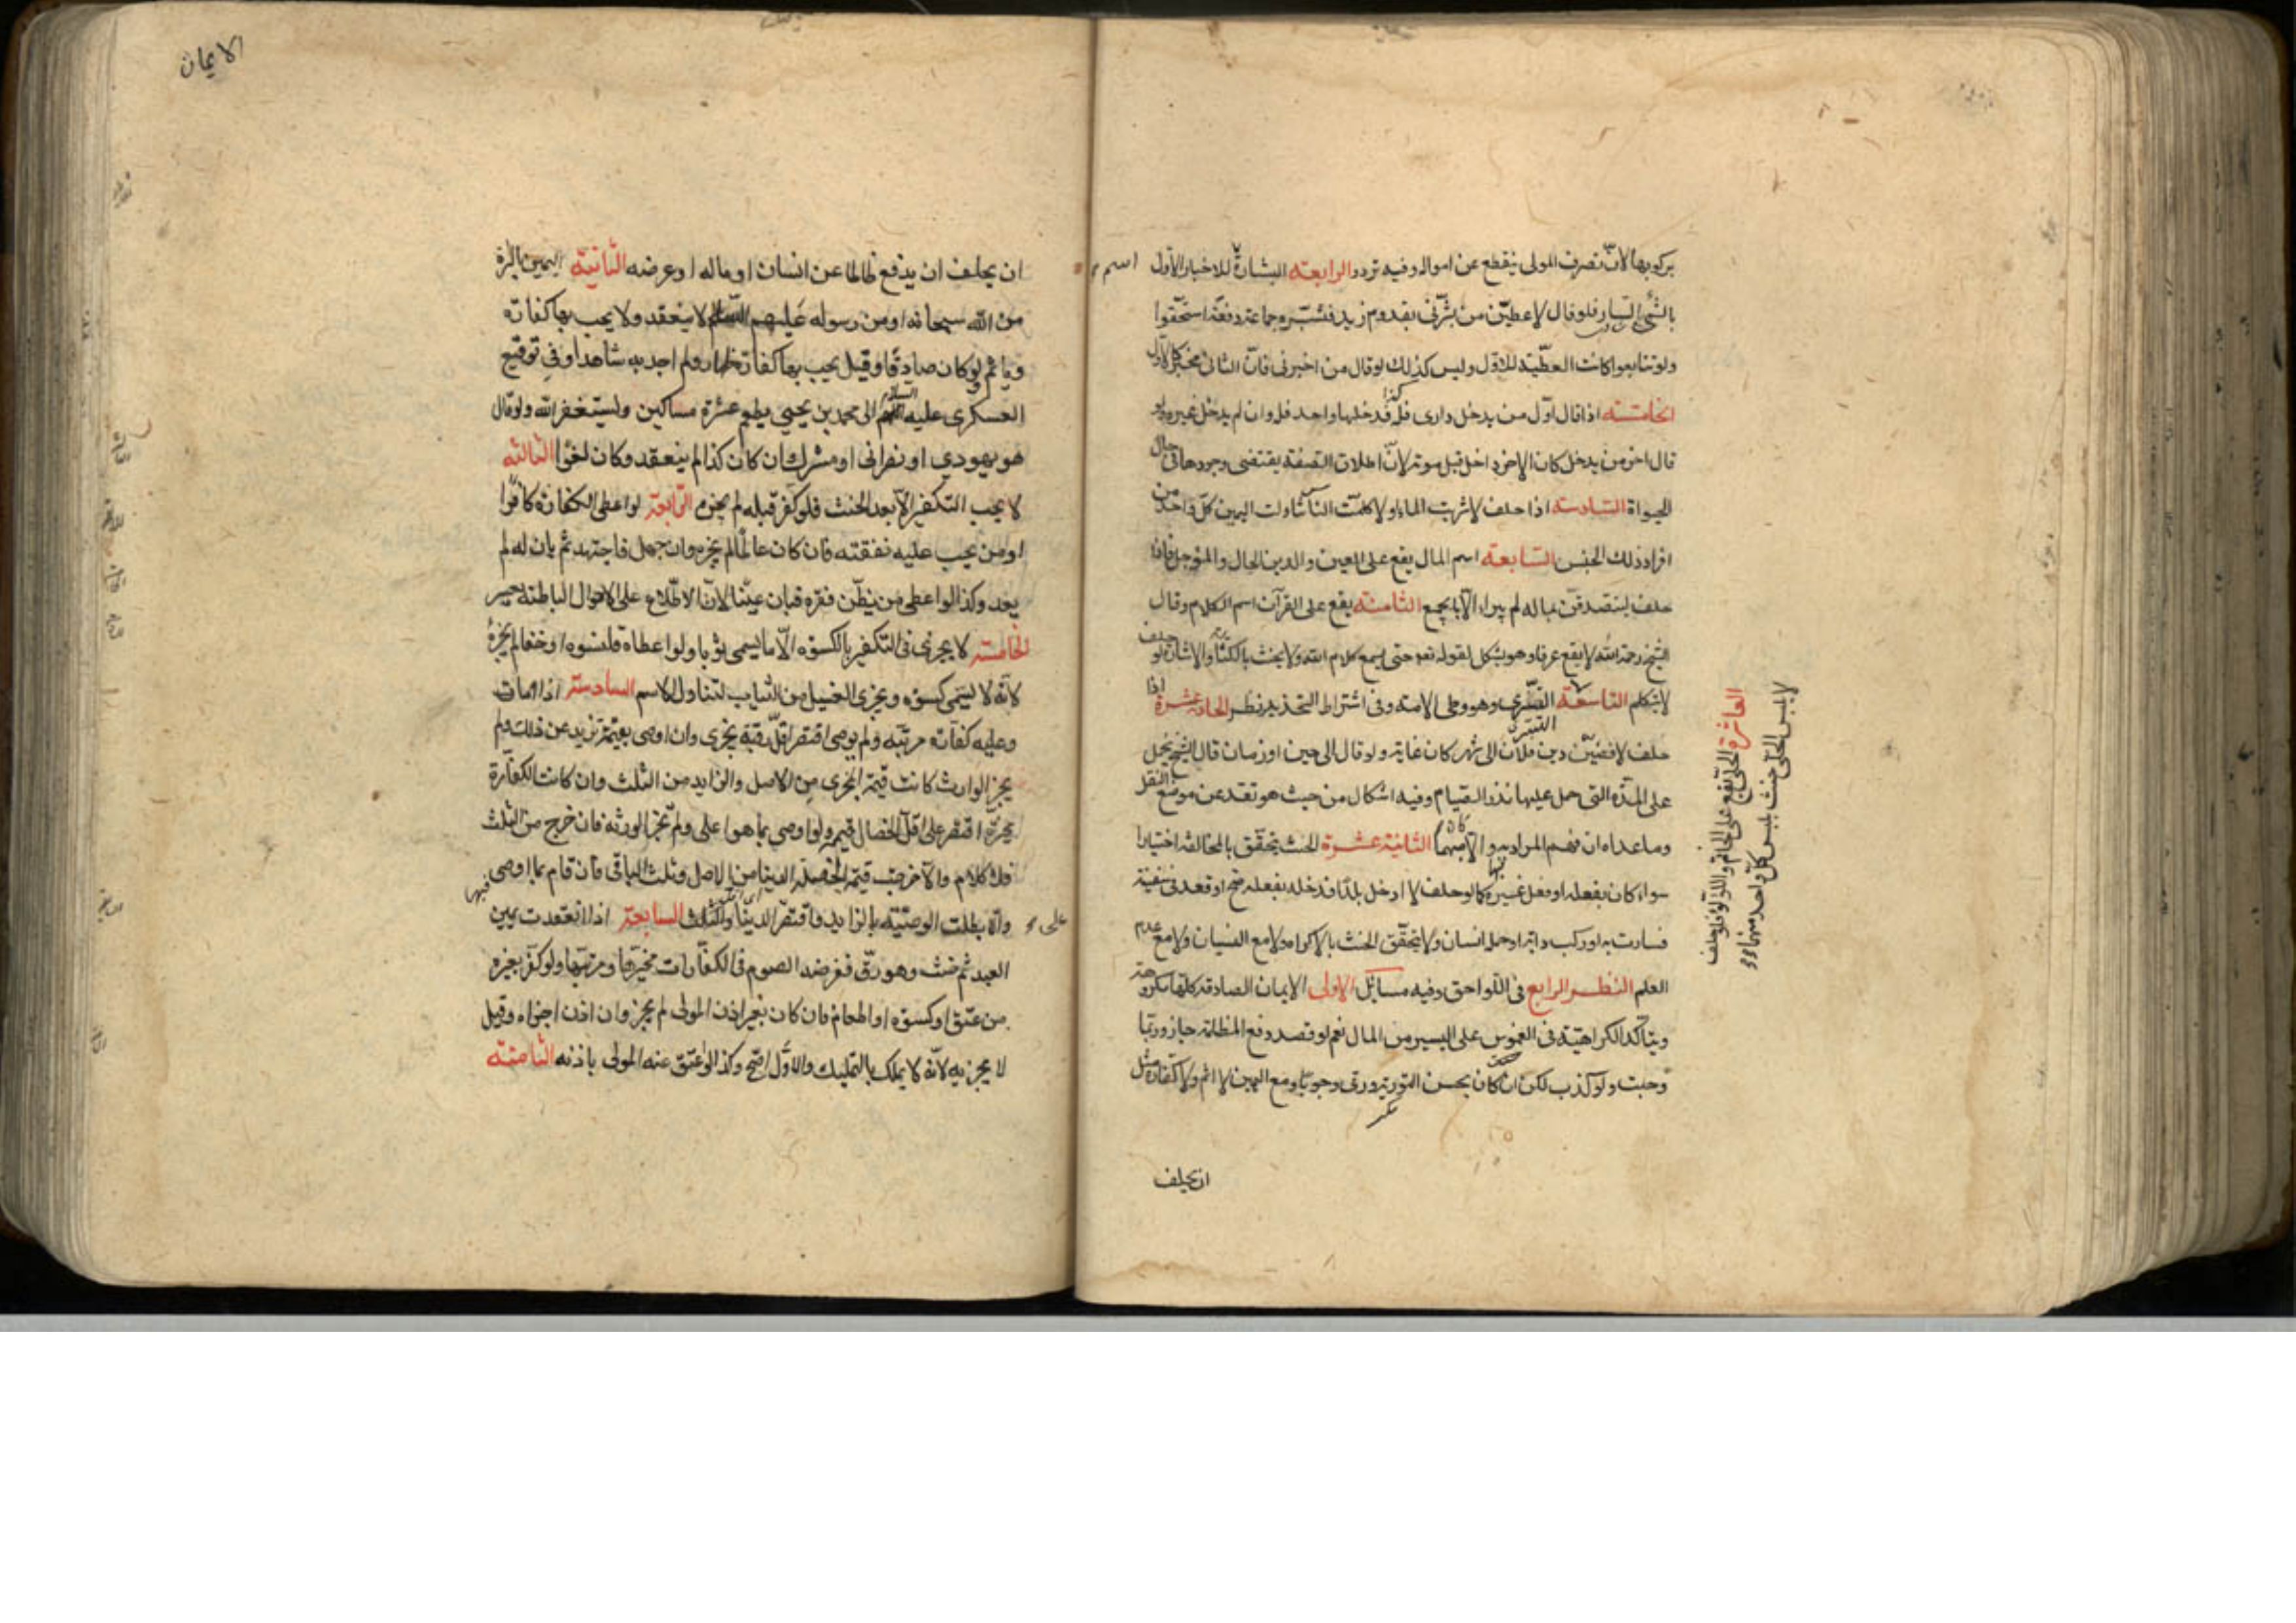 بركوبها لان تصرف المولى ينقطع عن امواله وفيه تردد الرابعة البشارة اسم للاخبار الاول
بالشئ السار فلو قال لاعطين من بشرني بقدوم زيد فبشره جماعة دفعة استحقوا
ولو تتابعوا كانت العطية للاول وليس كذلك لو قال من اخبرني فان الثاني مخبر كالاول
الخامسة اذا قال اول من يدخل دارى فله كذا فدخلها واحد فله وان لم يدخل غيره ولو
قال اخر من يدخل كان لاخر داخل قبل موته لان اطلاق الصفة يقتضى وجودها في حال
الحيوة السادسة اذا حلف لا شربت الماء او لا كلمت الناس تناولت اليمين كل واحد من
افراد ذلك الجنس السابعة اسم المال يقع على العين والدين الحال والمؤجل فاذا
حلف ليتصدقن بماله لم يبرأ الا بالجميع الثامنة يقع على القرآن اسم الكلام وقال
الشيخ رحمه الله لا يقع عرفا وهو يشكل لقوله تعه حتى يسمع كلام الله ولا يحنث بالكتابة والاشارة لو حلف
لا يتكلم التاسعة التسرى وهو وطى الامة وفى اشتراط التخدير نظر الحادية عشرة اذا
التسرى
حلف لاقضين دين فلان الى شهر كان غاية ولو قال الى حين او زمان قال الشيخ يحمل
على المدة التى حمل عليها نذر الصيام وفيه اشكال من حيث هو تعد عن موضع النقل
وما عداه ان فهم المراد به والا كان مبهما الثانية عشرة الحنث يتحقق بالمخالفة اختيارا
سواء كان بفعله او فعل غيره كما لو حلف لا ادخل بلدا فدخله بفعله او قعد فى سفينة
فسارت به او ركب دابة او حمله انسان ولا يتحقق الحنث بالاكراه ولا مع النسيان ولا مع عدم
العلم النظر الرابع فى اللواحق وفيه مسائل الاولى الايمان الصادقة كلها مكروهة
ويتأكد الكراهية فى الغموس على اليسير من المال نعم لو قصد دفع المظلمة جاز وربما
وجبت ولو كذب لكن ان كان يحسن التورية ورى وجوبا ومع اليمين لا اثم ولا كفارة مثل
ان يحلف
العاشرة الحلى يقع على الخاتم واللؤلؤ فلو حلف
لا يلبس الحلى حنث بلبس كل واحد منهما
الايمان
ان يحلف ان يدفع ظالما عن انسان او ماله او عرضه الثانية اليمين بالبراءة
من الله سبحانه او من رسوله عليهم السلام لا ينعقد ولا يجب بها كفارة
وياثم لو كان صادقا وقيل يجب بها كفارة ظهار ولم اجد به شاهدا وفي توقيع
العسكرى عليه السلام الى محمد بن يحيى يطعم عشرة مساكين وليستغفر الله ولو قال
هو يهودي او نصرانى او مشرك ان كان كذا لم ينعقد وكان لغوا الثالثة
لا يجب التكفير الا بعد الحنث فلو كفر قبله لم يجزه الرابعة لو اعطى الكفارة كافرا
او من يجب عليه نفقته فان كان عالما لم يجزه وان جهل فاجتهد ثم بان له لم
يعد وكذا لو اعطى من يظن فقره فبان غنيا لان الاطلاع على الاحوال الباطنة يعسر
الخامسة لا يجزى فى التكفير بالكسوة الا ما يسمى ثوبا ولو اعطاه قلنسوة او خفا لم يجزه
لانه لا يسمى كسوة ويجزى الغسيل من الثياب لتناول الاسم السادسة اذا مات
وعليه كفارة مرتبة ولم يوصى اقتصر اقل رقبة يجزى وان اوصى بقيمة تزيد عن ذلك ولم
يجز الوارث كانت قيمة المجزى من الاصل والزايد من الثلث وان كانت الكفارة
مخيرة اقتصر على اقل الخصال قيمة ولو اوصى بما هو اعلى ولم تجز الورثة فان خرج من الثلث
فلا كلام والا خرجت قيمة الخصلة الدنيا من الاصل وثلث الباقى فان قام بما اوصى
وان بطلت الوصية بالزايد واقتصر على الدنيا السابعة اذا انعقدت يمين
العبد ثم حنث وهو رق ففرضه الصوم فى الكفارات مخيرها ومرتبها ولو كفر بغيره
من عتق او كسوة او اطعام فان كان بغير اذن المولى لم يجز وان اذن اجزاه وقيل
لا يجزيه لانه لا يملك بالتمليك والاول اصح وكذا لو عتق عنه المولى باذنه الثامنة